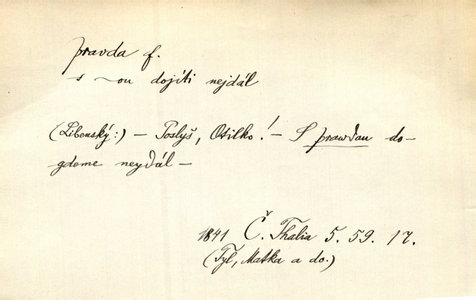 pravda f.
s ~ou dojíti nejdál
(Libenský:) – Poslyš, Otilko! – S prawdau do-
gdeme neydál –
1841 Č. Thalia 5. 59. 17.
(Tyl, Matka a do.)